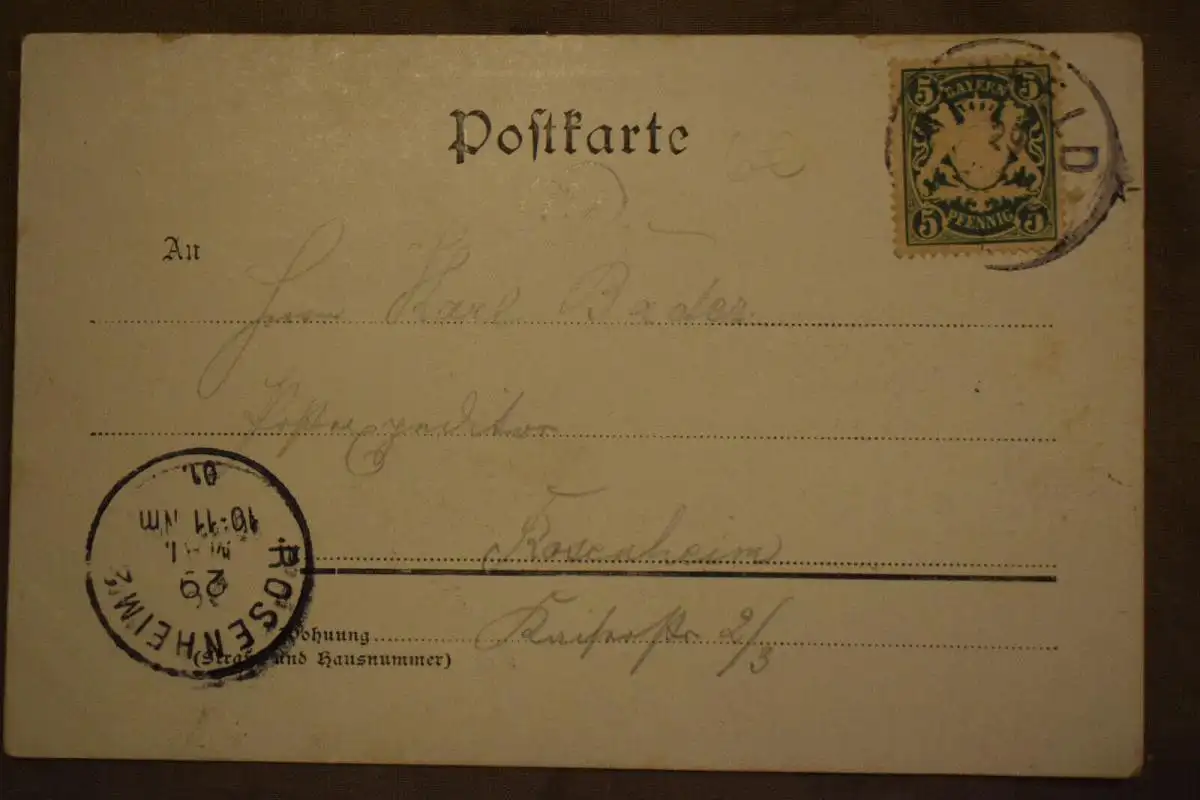 Postkarte
5 BAYERN 5
5 PFENNIG 5
29
ELD
An
Herrn Karl Bader
Postexpeditor
Rosenheim
Wohnung Kaiserstr 2/3
(Straße und Hausnummer)
ROSENHEIM 2
29
MAI.
10-11 Nm
01.